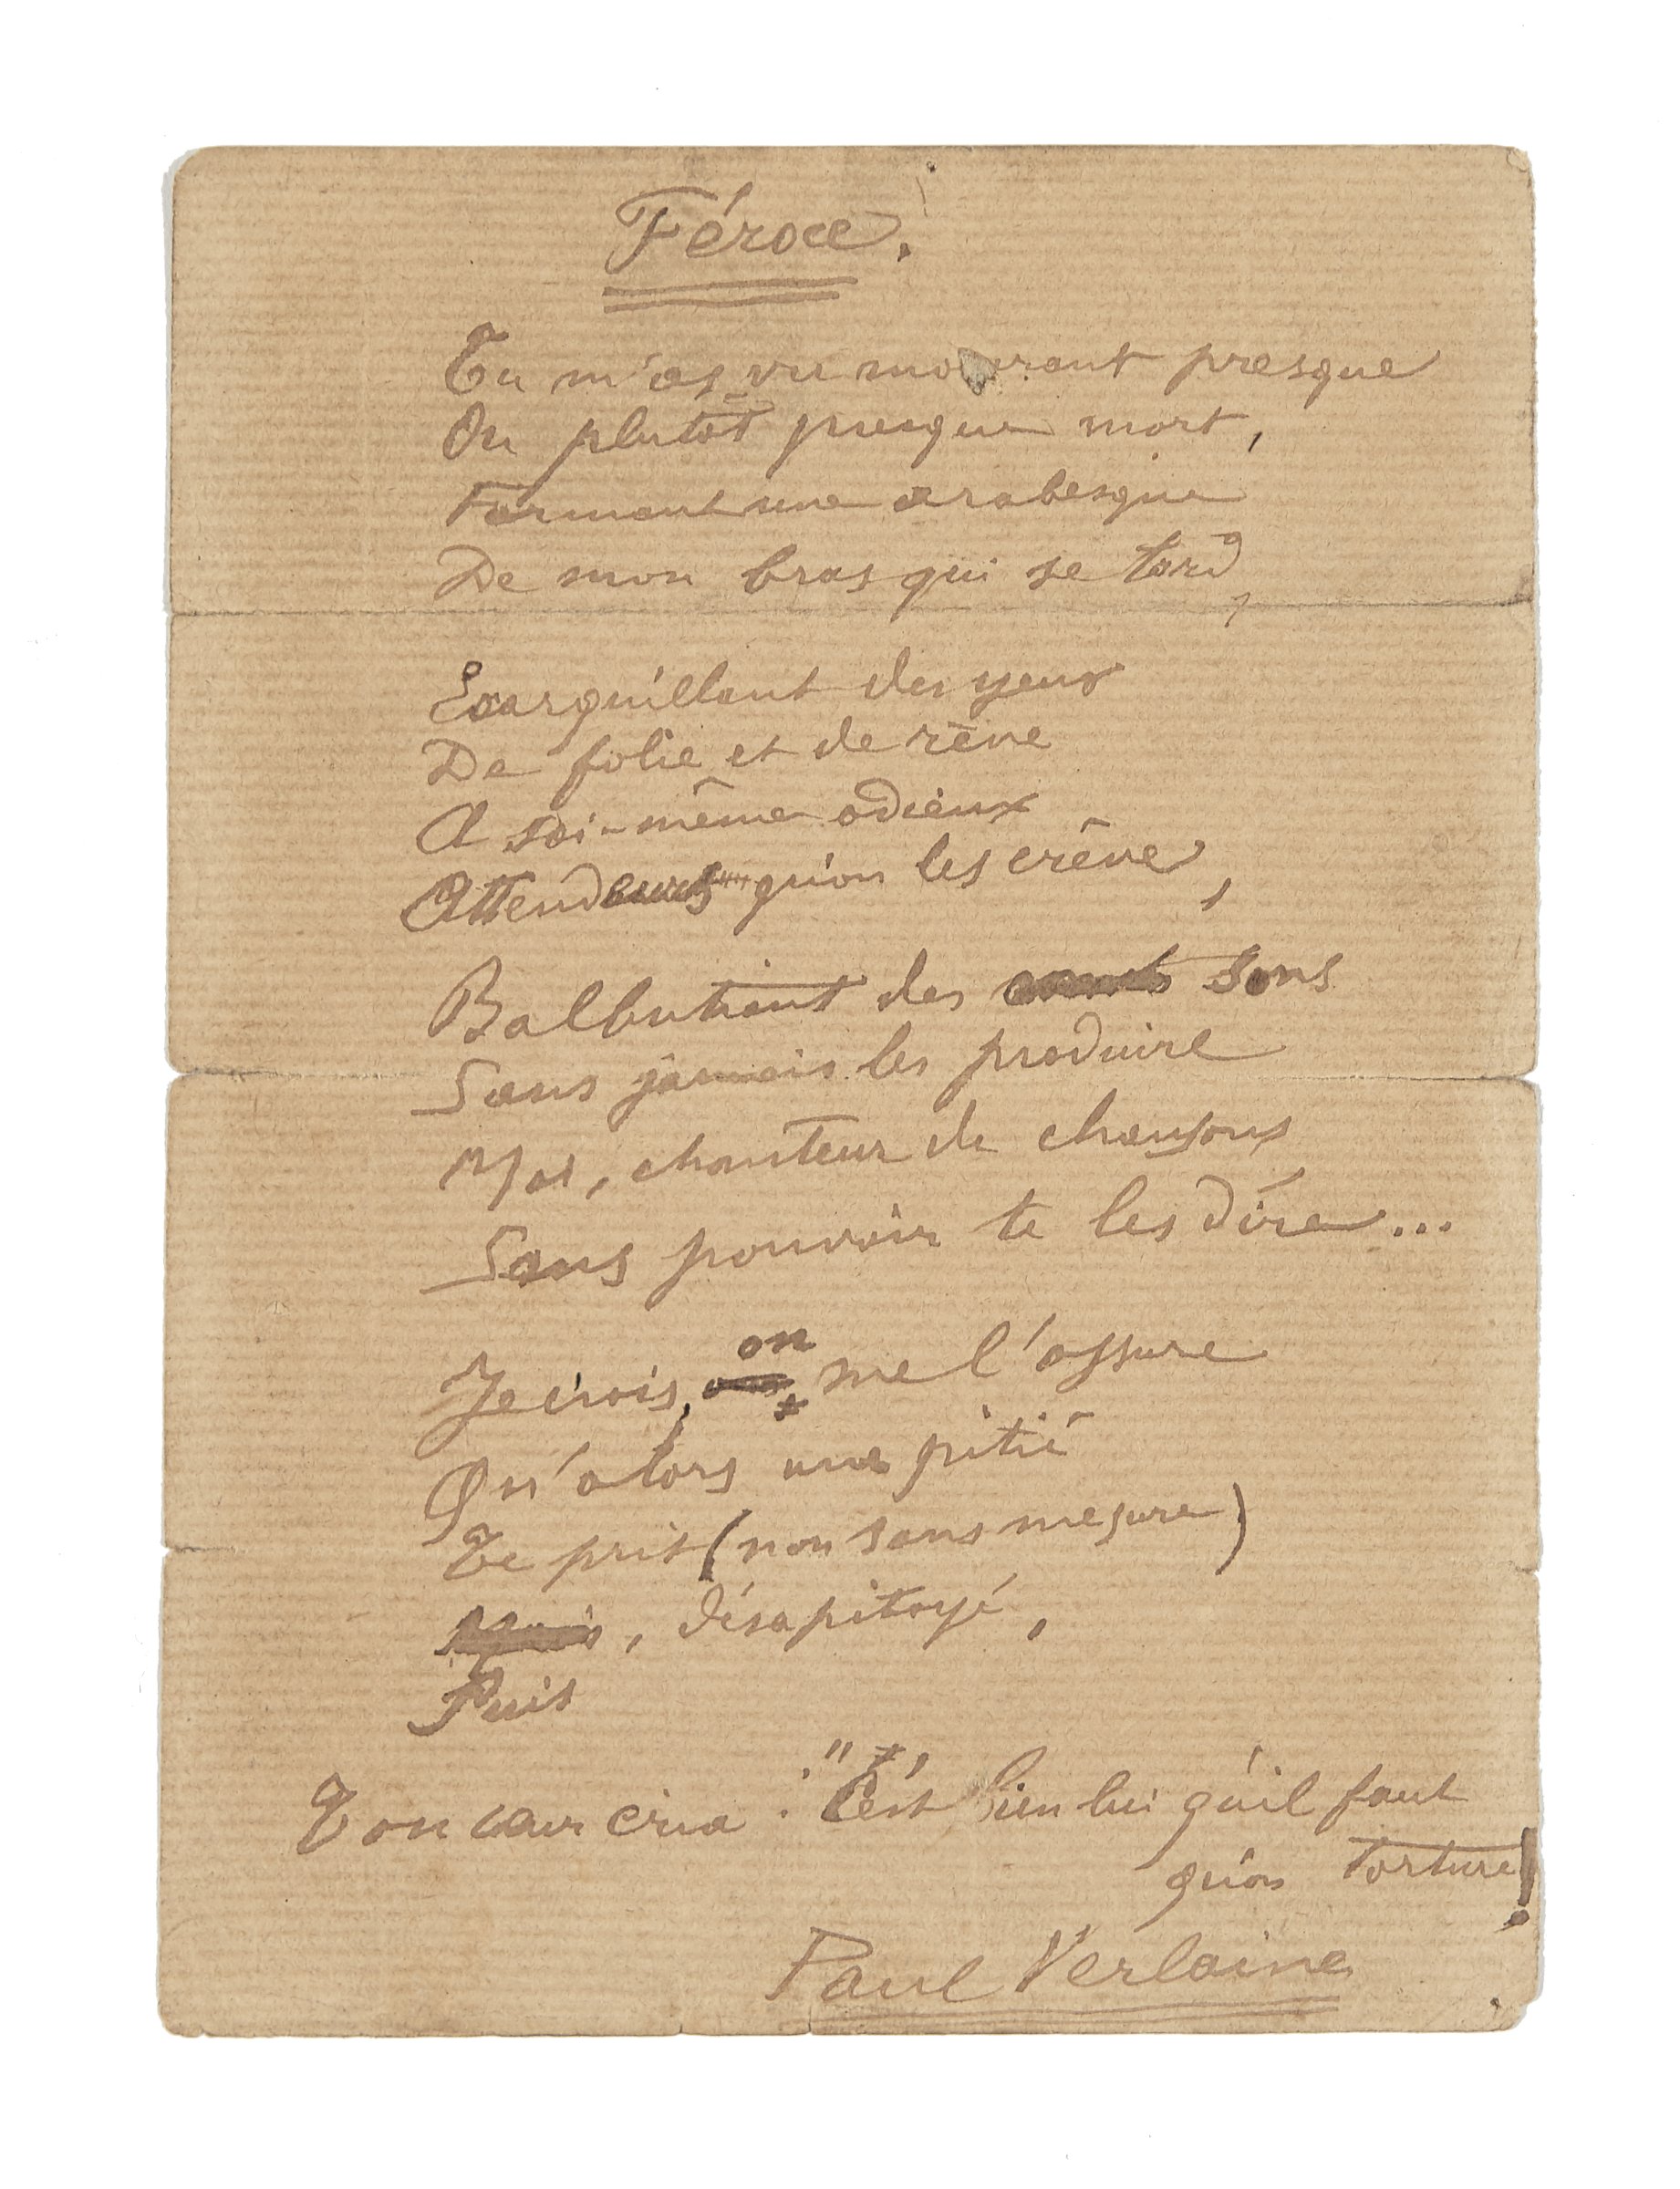 Féroce.
Tu m'as vu mourant presque
Ou plutôt presque mort,
Formant une arabesque
De mon bras qui se tord,
Ecarquillant des yeux
De folie et de rêve
A soi-même odieux
Attendant qu'on les crêve,
Balbutiant des sons
Sans jamais les produire
Moi, chanteur de chansons
Sans pouvoir te les dire...
on
Je crois, me l'assure
Qu'alors une pitié
Te prit (non sans mesure)
Mais, désapitoyé,
Puis
Ton cœur cria : "C'est bien lui qu'il faut
qu'on torture!
Paul Verlaine